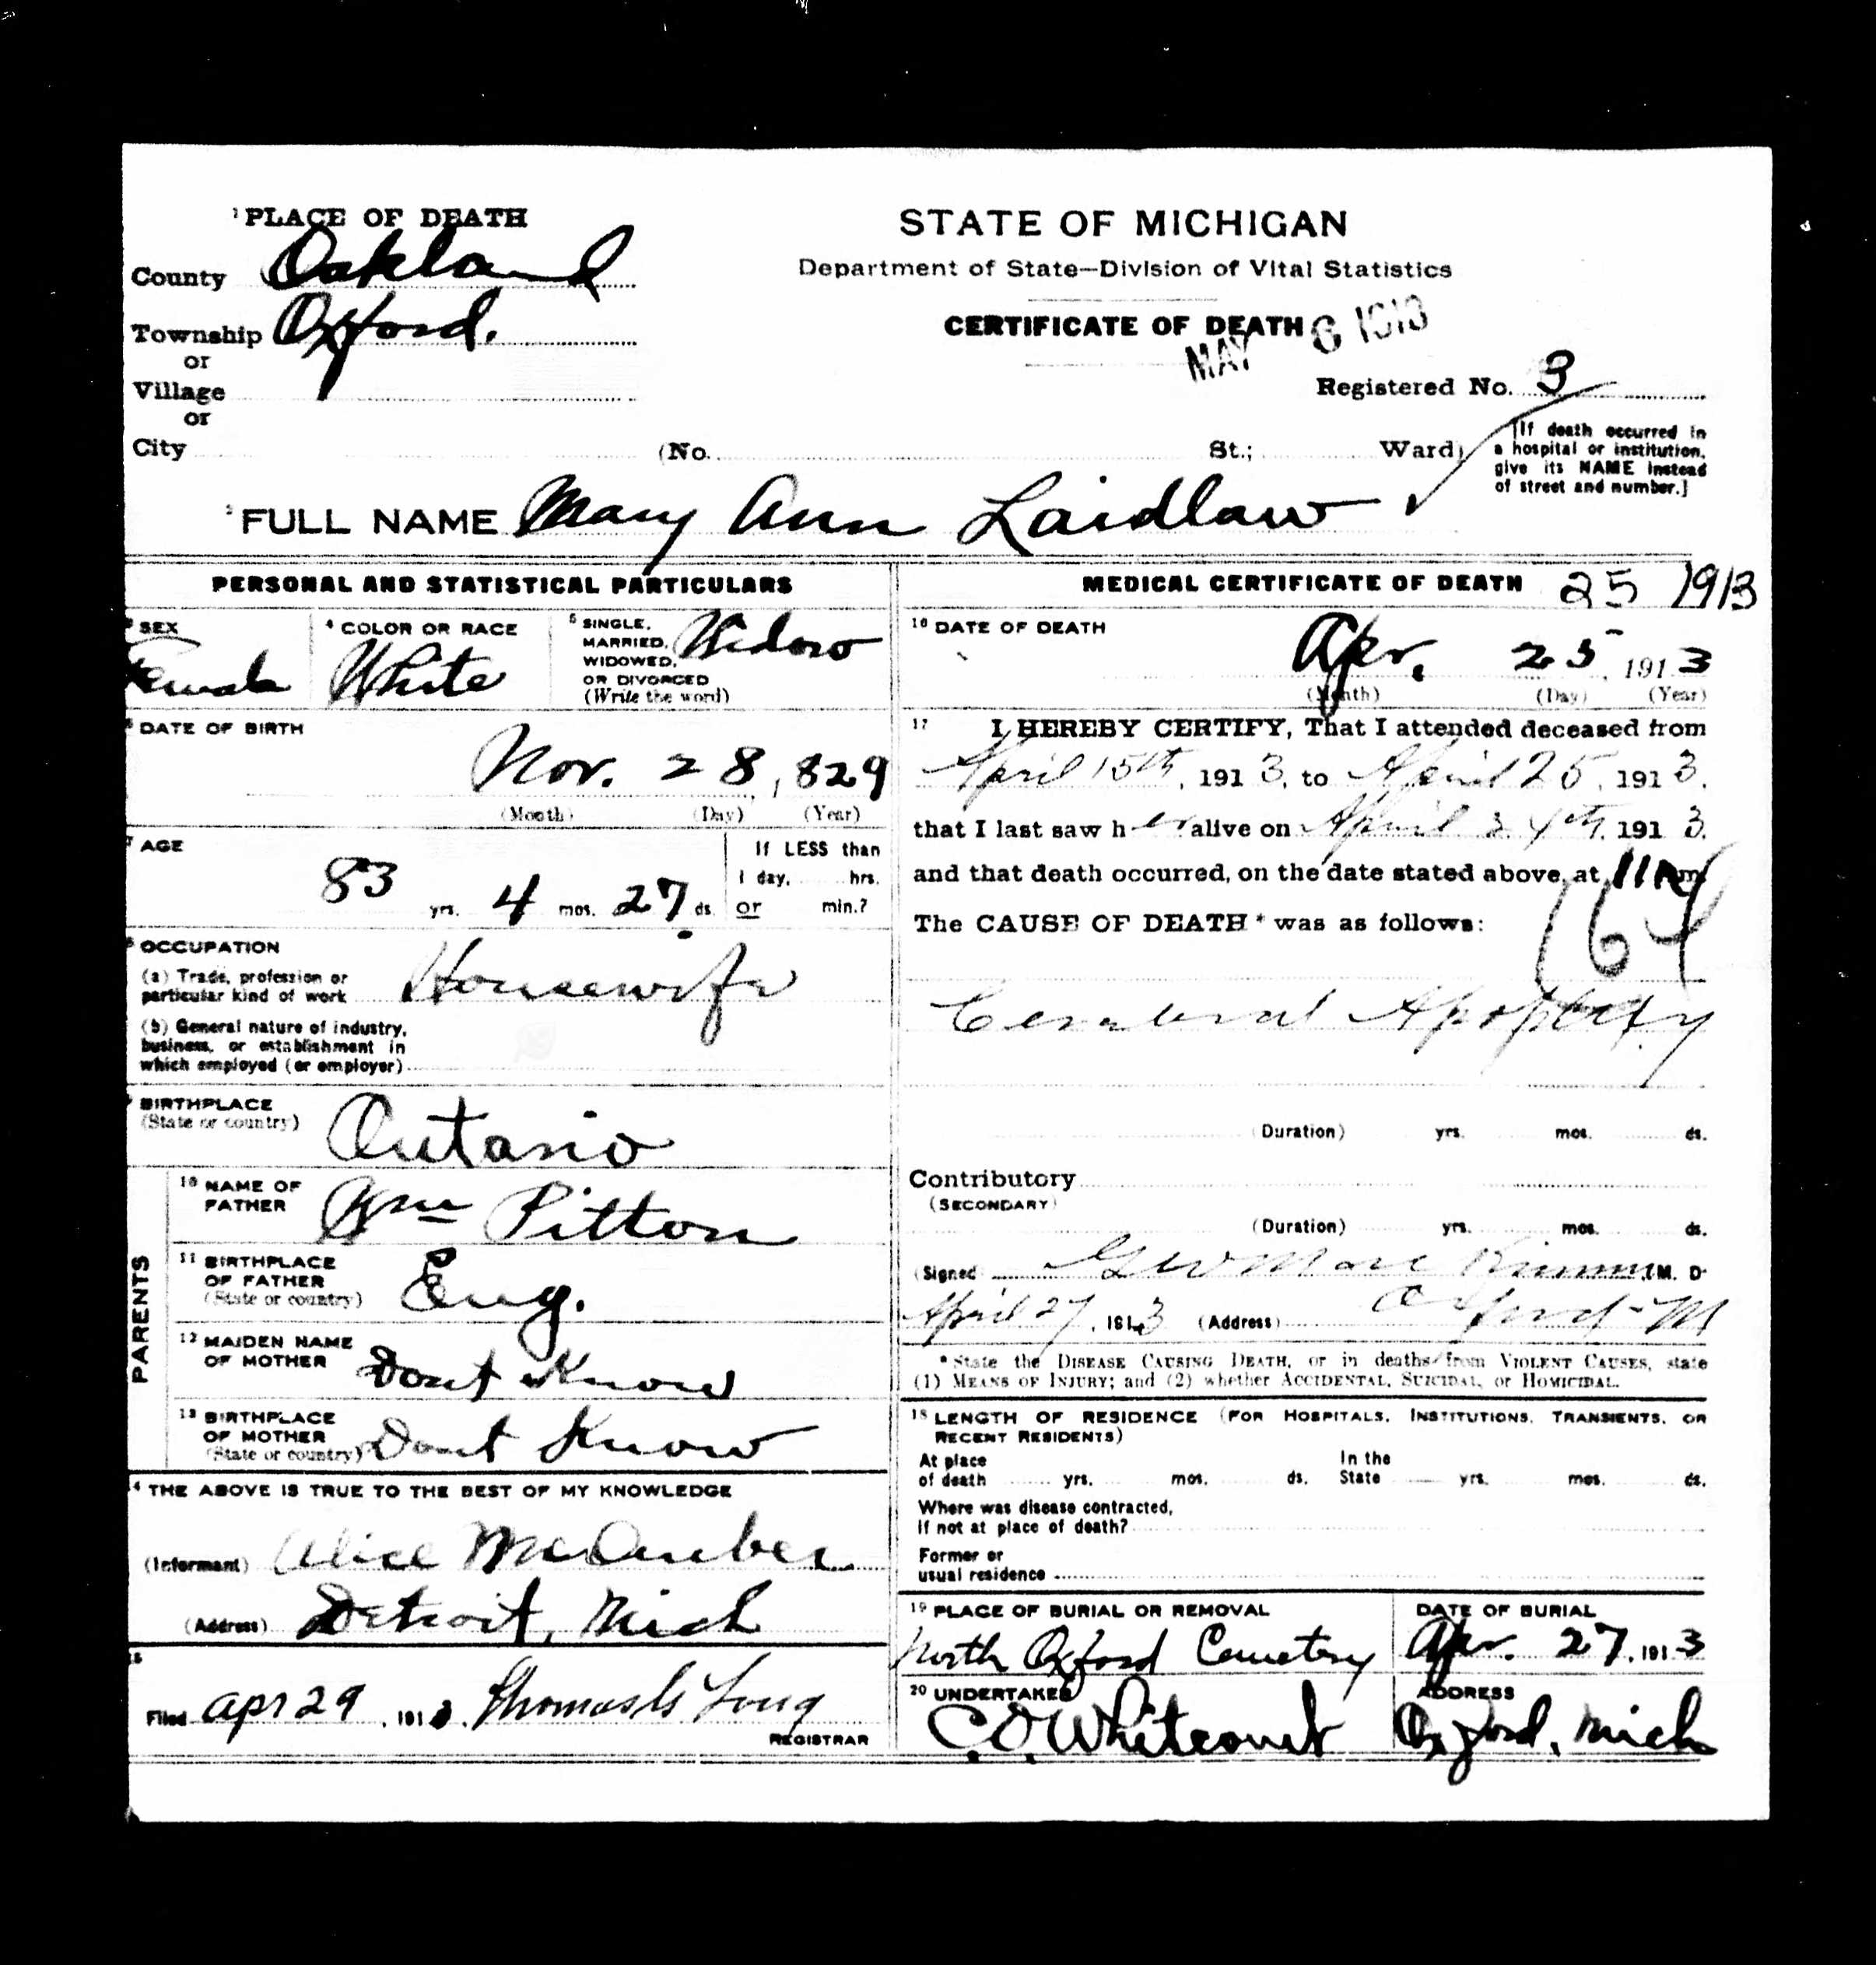 1 PLACE OF DEATH
County Oakland
Township Oxford.
or
Village
or
City (No. St.; Ward)
STATE OF MICHIGAN
Department of State—Division of Vital Statistics
CERTIFICATE OF DEATH
MAY 6 1913
Registered No. 3
[If death occurred in
a hospital or institution,
give its NAME instead
of street and number.]
2 FULL NAME Mary Ann Laidlaw
PERSONAL AND STATISTICAL PARTICULARS
3 SEX
Female
4 COLOR OR RACE
White
5 SINGLE,
MARRIED,
WIDOWED,
OR DIVORCED
(Write the word)
Widow
6 DATE OF BIRTH
Nov. 28, 1829
(Month) (Day) (Year)
7 AGE
83 yrs. 4 mos. 27 ds.
If LESS than
1 day, hrs.
or min.?
8 OCCUPATION
(a) Trade, profession or
particular kind of work Housewife
(b) General nature of industry,
business, or establishment in
which employed (or employer)
9 BIRTHPLACE
(State or country)
Ontario
PARENTS
10 NAME OF
FATHER
Wm Pitton
11 BIRTHPLACE
OF FATHER
(State or country)
Eng.
12 MAIDEN NAME
OF MOTHER
Dont Know
13 BIRTHPLACE
OF MOTHER
(State or country)
Dont Know
14 THE ABOVE IS TRUE TO THE BEST OF MY KNOWLEDGE
(Informant) Alice
(Address) Detroit, Mich
15
Filed Apr 29, 1913. Thomas Long
REGISTRAR
MEDICAL CERTIFICATE OF DEATH
25 1913
16 DATE OF DEATH
Apr. 25, 1913
(Month) (Day) (Year)
17 I HEREBY CERTIFY, That I attended deceased from
April 15th, 1913, to April 25, 1913,
that I last saw her alive on April 24th, 1913,
and that death occurred, on the date stated above, at 11 A m.
The CAUSE OF DEATH* was as follows:
64
Cerebral Apoplexy
(Duration) yrs. mos. ds.
Contributory
(SECONDARY)
(Duration) yrs. mos. ds.
(Signed) M. D.
April 27, 1913 (Address) Oxford M
*State the DISEASE CAUSING DEATH, or in deaths from VIOLENT CAUSES, state
(1) MEANS OF INJURY; and (2) whether ACCIDENTAL, SUICIDAL, or HOMICIDAL.
18 LENGTH OF RESIDENCE (FOR HOSPITALS, INSTITUTIONS, TRANSIENTS, OR
RECENT RESIDENTS)
At place
of death yrs. mos. ds.
In the
State yrs. mos. ds.
Where was disease contracted,
if not at place of death?
Former or
usual residence
19 PLACE OF BURIAL OR REMOVAL
North Oxford Cemetery
DATE OF BURIAL
Apr. 27, 1913
20 UNDERTAKER
C.O. Whitcomb
ADDRESS
Oxford, Mich